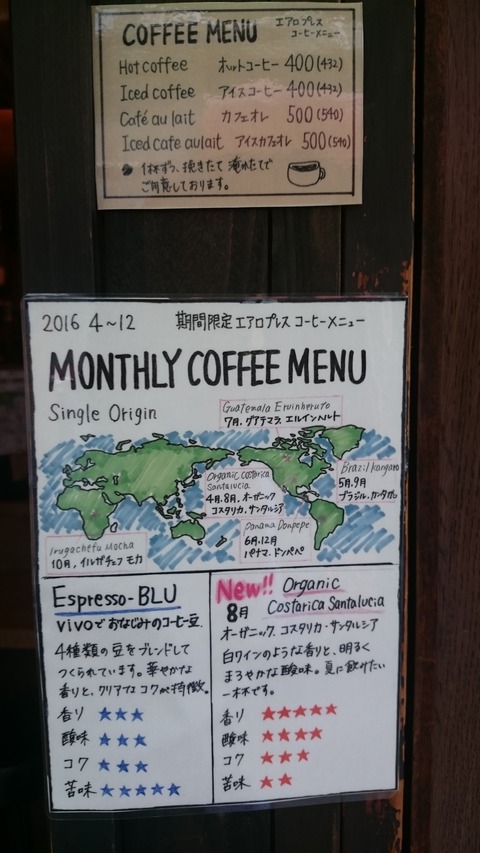 COFFEE MENU エアロプレス コーヒーメニュー
Hot coffee ホットコーヒー 400(432)
Iced coffee アイスコーヒー 400(432)
Café au lait カフェオレ 500(540)
Iced cafe aulait アイスカフェオレ 500(540)
1杯ずつ、挽きたて 淹れたてで
ご用意しております。
2016 4～12 期間限定 エアロプレス コーヒーメニュー
MONTHLY COFFEE MENU
Single Origin
Guatemala Eruinheruto
7月. グアテマラ. エルインヘルト
Organic Costarica
Santalucia
4月.8月. オーガニック
コスタリカ. サンタルシア
Brazil
5月.9月
ブラジル.
Panama Donpepe
6月.12月
パナマ. ドンペペ
Irugachefu Mocha
10月. イルガチェフ モカ
Espresso-BLU
vivoで おなじみのコーヒー豆.
4種類の豆をブレンドして
つくられています。華やかな
香りと、クリアなコクが特徴。
香り ★★★
酸味 ★★★
コク ★★★
苦味 ★★★★★
New!! Organic
8月 Costarica Santalucia
オーガニック. コスタリカ・サンタルシア
白ワインのような香りと、明るく
まろやかな酸味。夏に飲みたい
一杯です。
香り ★★★★★
酸味 ★★★★
コク ★★★
苦味 ★★